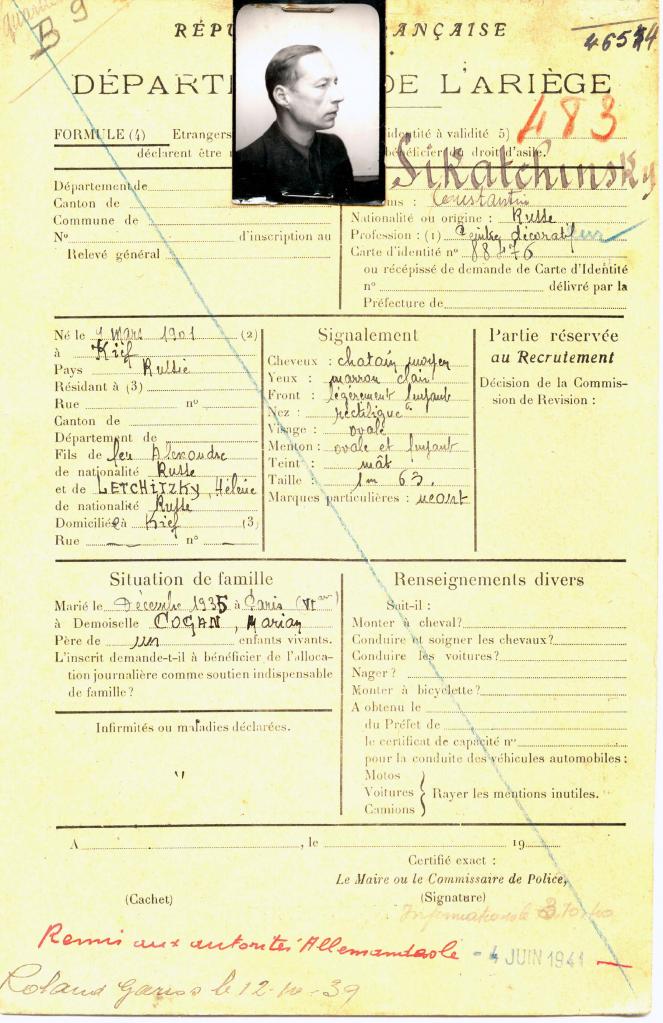 B 9
RÉPU ANÇAISE
46544
DÉPART DE L'ARIÈGE
483
FORMULE (4) Etrangers identité à validité 5)
déclarent être bénéficier du droit d'asile.
Sikatchinsky
Département de
Canton de
Commune de
N° d'inscription au
Relevé général
ms : Constantin
Nationalité ou origine : Russe
Profession : (1) Peintre décorateur
Carte d'identité n° 88476
ou récépissé de demande de Carte d'Identité
n° délivré par la
Préfecture de
Né le 9 mars 1901 (2)
à Kief
Pays Russie
Résidant à (3)
Rue n°
Canton de
Département de
Fils de feu Alexandre
de nationalité Russe
et de LETCHITZKY, Hélène
de nationalité Russe
Domiciliée à Kief (3)
Rue n°
Signalement
Cheveux : chatain moyen
Yeux : marron clair
Front : légèrement fuyant
Nez : rectiligne
Visage : ovale
Menton : ovale et fuyant
Teint : mât
Taille : 1m 63.
Marques particulières : néant
Partie réservée
au Recrutement
Décision de la Commis-
sion de Revision :
Situation de famille
Marié le Décembre 1935 à Paris (VI ar)
à Demoiselle COGAN, Marian
Père de un enfants vivants.
L'inscrit demande-t-il à bénéficier de l'alloca-
tion journalière comme soutien indispensable
de famille ?
Infirmités ou maladies déclarées.
"
Renseignements divers
Sait-il :
Monter à cheval?
Conduire et soigner les chevaux?
Conduire les voitures?
Nager ?
Monter à bicyclette?
A obtenu le
du Préfet de
le certificat de capacité n°
pour la conduite des véhicules automobiles :
Motos
Voitures } Rayer les mentions inutiles.
Camions
A , le 19
Certifié exact :
Le Maire ou le Commissaire de Police,
(Cachet) (Signature)
3.10.40
Remis aux autorités Allemandes le - 4 JUIN 1941 —
Roland Garros le 12-10-39